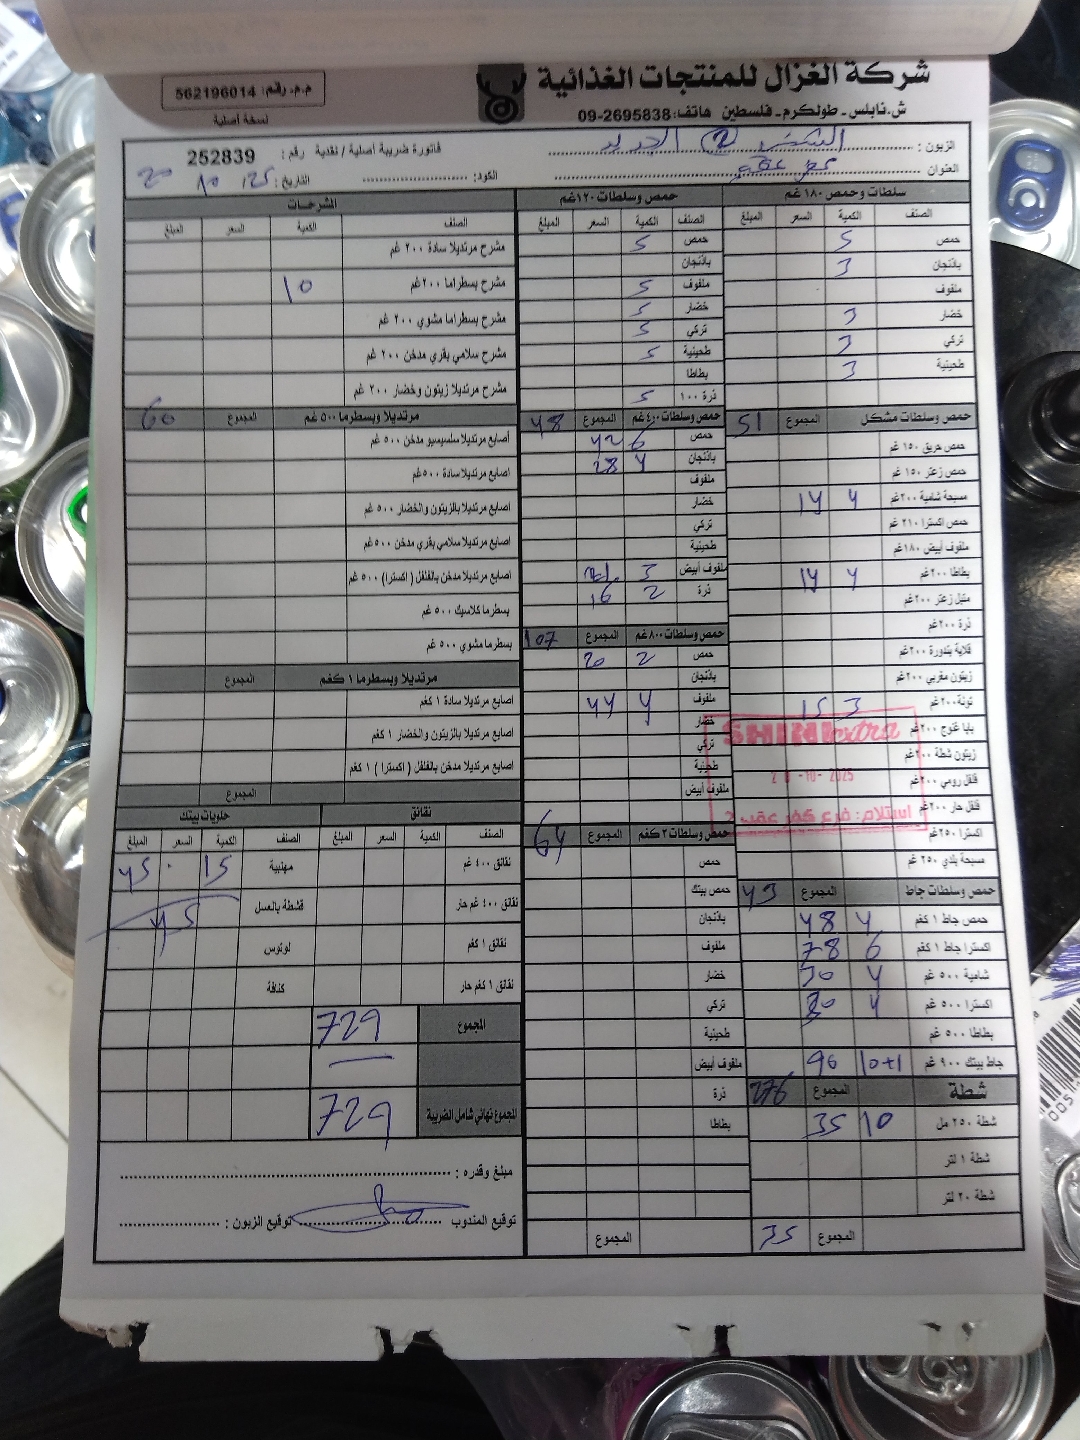 شركة الغزال للمنتجات الغذائية
ش.نابلس - طولكرم - فلسطين هاتف: 09-2695838
م.م. رقم: 562196014
نسخة أصلية
الزبون :
الجديد
العنوان
فاتورة ضريبة أصلية / نقدية رقم : 252839
الكود:
التاريخ : 25 10 20
سلطات وحمص ١٨٠ غم
الصنف الكمية السعر المبلغ
حمص 5
باذنجان 3
ملفوف
خضار 3
تركي 3
طحينية 3
حمص وسلطات مشكل المجموع 51
حمص حريق ١٥٠ غم
حمص زعتر ١٥٠ غم
مسبحة شامية ٢٠٠غم 4 14
حمص اكسترا ٢١٠ غم
ملفوف أبيض ١٨٠غم
بطاطا ٢٠٠غم 4 14
متبل زعتر ٢٠٠غم
ذرة ٢٠٠غم
قلاية بندورة ٢٠٠غم
زيتون مغربي ٢٠٠غم
تونة ٢٠٠غم 3 15
بابا غنوج ٢٠٠غم
زيتون شطة ٢٠٠غم
فلفل رومي ٢٠٠غم
فلفل حار ٢٠٠غم
اكسترا ٢٥٠غم
مسبحة بلدي ٢٥٠ غم
حمص وسلطات جاط المجموع 43
حمص جاط ١ كغم 4 48
اكسترا جاط ١ كغم 6 78
شامية ٥٠٠ غم 4 30
اكسترا ٥٠٠ غم 4
بطاطا ٥٠٠ غم
جاط بيتك ٩٠٠ غم 10+1 90
شطة المجموع 276
شطة ٢٥٠ مل 10 35
شطة ١ لتر
شطة ٢٠ لتر
المجموع 35
حمص وسلطات ١٢٠غم
الصنف الكمية السعر المبلغ
حمص 5
باذنجان
ملفوف 5
خضار 5
تركي 5
طحينية 5
بطاطا
ذرة ١٠٠ 5
حمص وسلطات ٤٠٠ غم المجموع 48
حمص 6 42
باذنجان 4 28
ملفوف
خضار
تركي
طحينية
ملفوف أبيض 3 21
ذرة 2 16
حمص وسلطات ٨٠٠ غم المجموع 107
حمص 2 20
باذنجان
ملفوف 4 44
خضار
تركي
طحينية
ملفوف أبيض
حمص وسلطات ٢ كغم المجموع 64
حمص
حمص بيتك
باذنجان
ملفوف
خضار
تركي
طحينية
ملفوف أبيض
ذرة
بطاطا
المجموع
المشرحات
الصنف الكمية السعر المبلغ
مشرح مرتديلا سادة ٢٠٠ غم
مشرح بسطراما ٢٠٠غم 10
مشرح بسطراما مشوي ٢٠٠ غم
مشرح سلامي بقري مدخن ٢٠٠ غم
مشرح مرتديلا زيتون وخضار ٢٠٠ غم
مرتديلا وبسطرما ٥٠٠ غم المجموع 60
أصابع مرتديلا سلسيسيو مدخن ٥٠٠ غم
اصابع مرتديلا سادة ٥٠٠غم
اصابع مرتديلا بالزيتون والخضار ٥٠٠ غم
اصابع مرتديلا سلامي بقري مدخن ٥٠٠غم
اصابع مرتديلا مدخن بالفلفل ( اكسترا) ٥٠٠ غم
بسطرما كلاسيك ٥٠٠ غم
بسطرما مشوي ٥٠٠ غم
مرتديلا وبسطرما ١ كغم المجموع
أصابع مرتديلا سادة ١ كغم
اصابع مرتديلا بالزيتون والخضار ١ كغم
اصابع مرتديلا مدخن بالفلفل ( اكسترا ) ١ كغم
المجموع
نقانق
الصنف الكمية السعر المبلغ
نقانق ٤٠٠ غم
نقانق ٤٠٠ غم حار
نقانق ١ كغم
نقانق ١ كغم حار
حلويات بيتك
الصنف الكمية السعر المبلغ
مهلبية 15 45
قشطة بالعسل
45
لوتوس
كنافة
المجموع 729
المجموع نهائي شامل الضريبة 729
مبلغ وقدره :
توقيع المندوب
توقيع الزبون :
SHINI extra
-10-2025
استلام: فرع كفر عقب 2